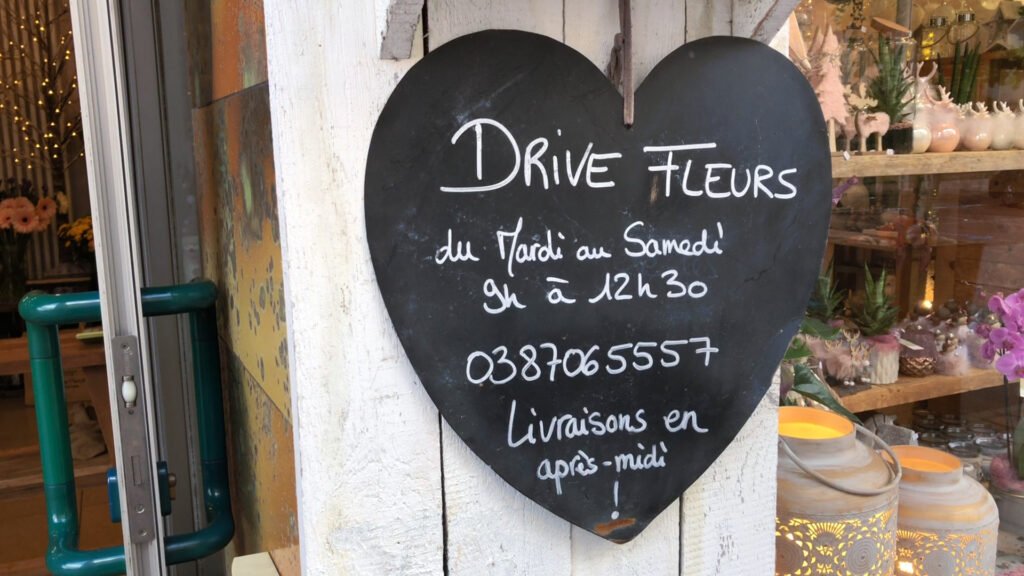 DRIVE FLEURS
du Mardi au Samedi
9h à 12h30
0387065557
Livraisons en
après-midi
!